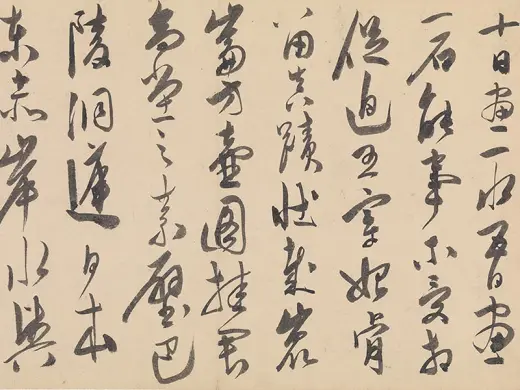 十日畫一水五日畫
一石能事不受相
促迫王宰始肯
留真蹟壯哉崑
崙方壺圖挂君
高堂之素壁巴
陵洞庭日本
東赤岸水與